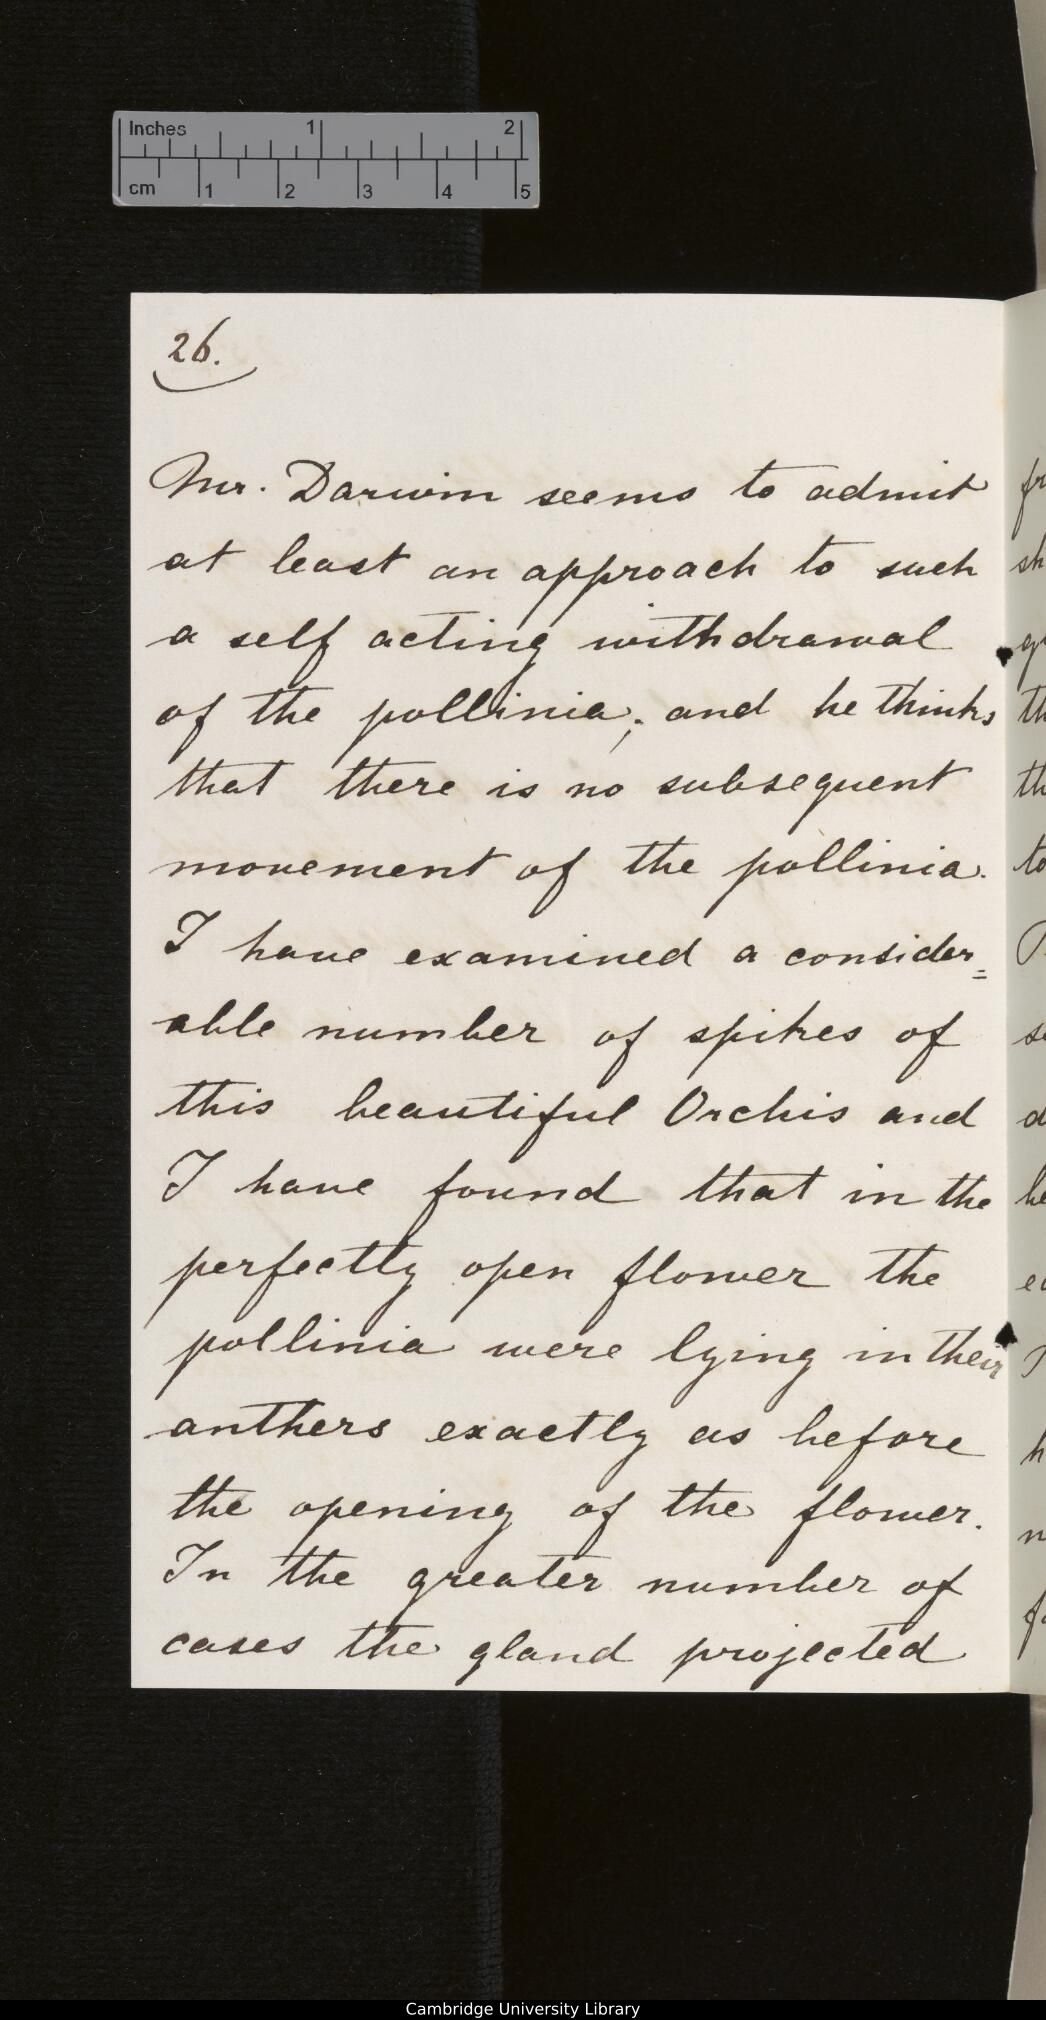 Inches 1 2
cm 1 2 3 4 5
26.
Mr. Darwin seems to admit
at least an approach to such
a self acting withdrawal
of the pollinia; and he thinks
that there is no subsequent
movement of the pollinia.
I have examined a consider=
able number of spikes of
this beautiful Orchis and
I have found that in the
perfectly open flower the
pollinia were lying in their
anthers exactly as before
the opening of the flower.
In the greater number of
cases the gland projected
Cambridge University Library